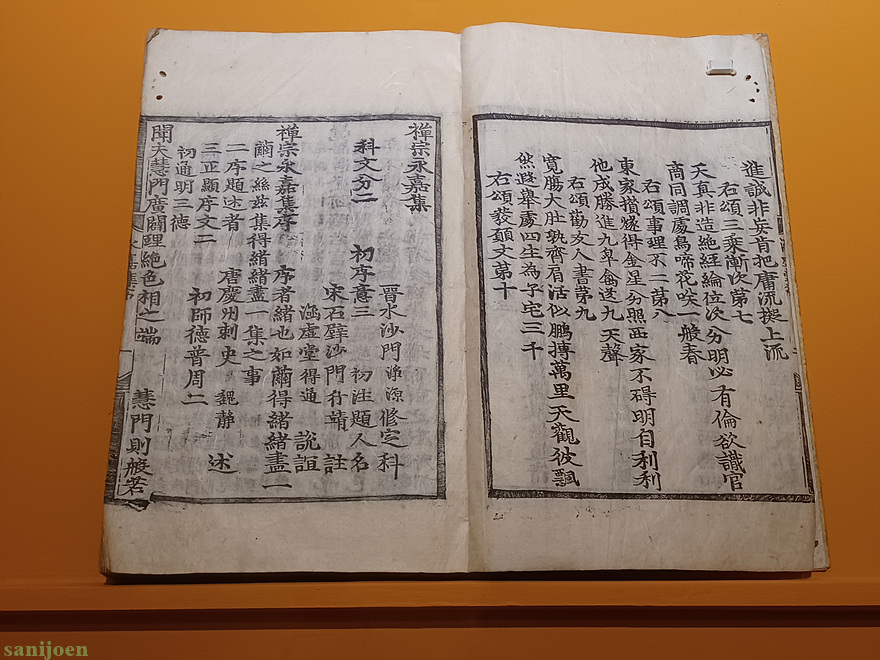 進誠非妄肯把庸流擬上流
右頌三乘漸次第七
天真非造絶經綸位次分明必有倫欲識官
商同調處鳥啼花咲一般春
右頌事理不二第八
東家撲遂得金星分照西家不碍明自利利
他成勝進九皐禽送九天聲
右頌勸友人書第九
寬腸大肚孰齊肩活似鵬搏萬里天觀彼飄
然遊擧處四生為子宅三千
右頌發願文第十
禪宗永嘉集
晋水沙門淨源修定科
科文分二 初序意三 初注題人名
宋石壁沙門行靖 註
涵虛堂得通 說誼
禪宗永嘉集序 序者緒也如繭得緒緒盡一
繭之絲玆集得緒緒盡一集之事
二序題述者 唐慶州刺史 魏静 述
三正顯序文二 初師德普周二
初通明三德
聞夫慧門廣闢理絶色相之端 慧門則般若
sanijoen